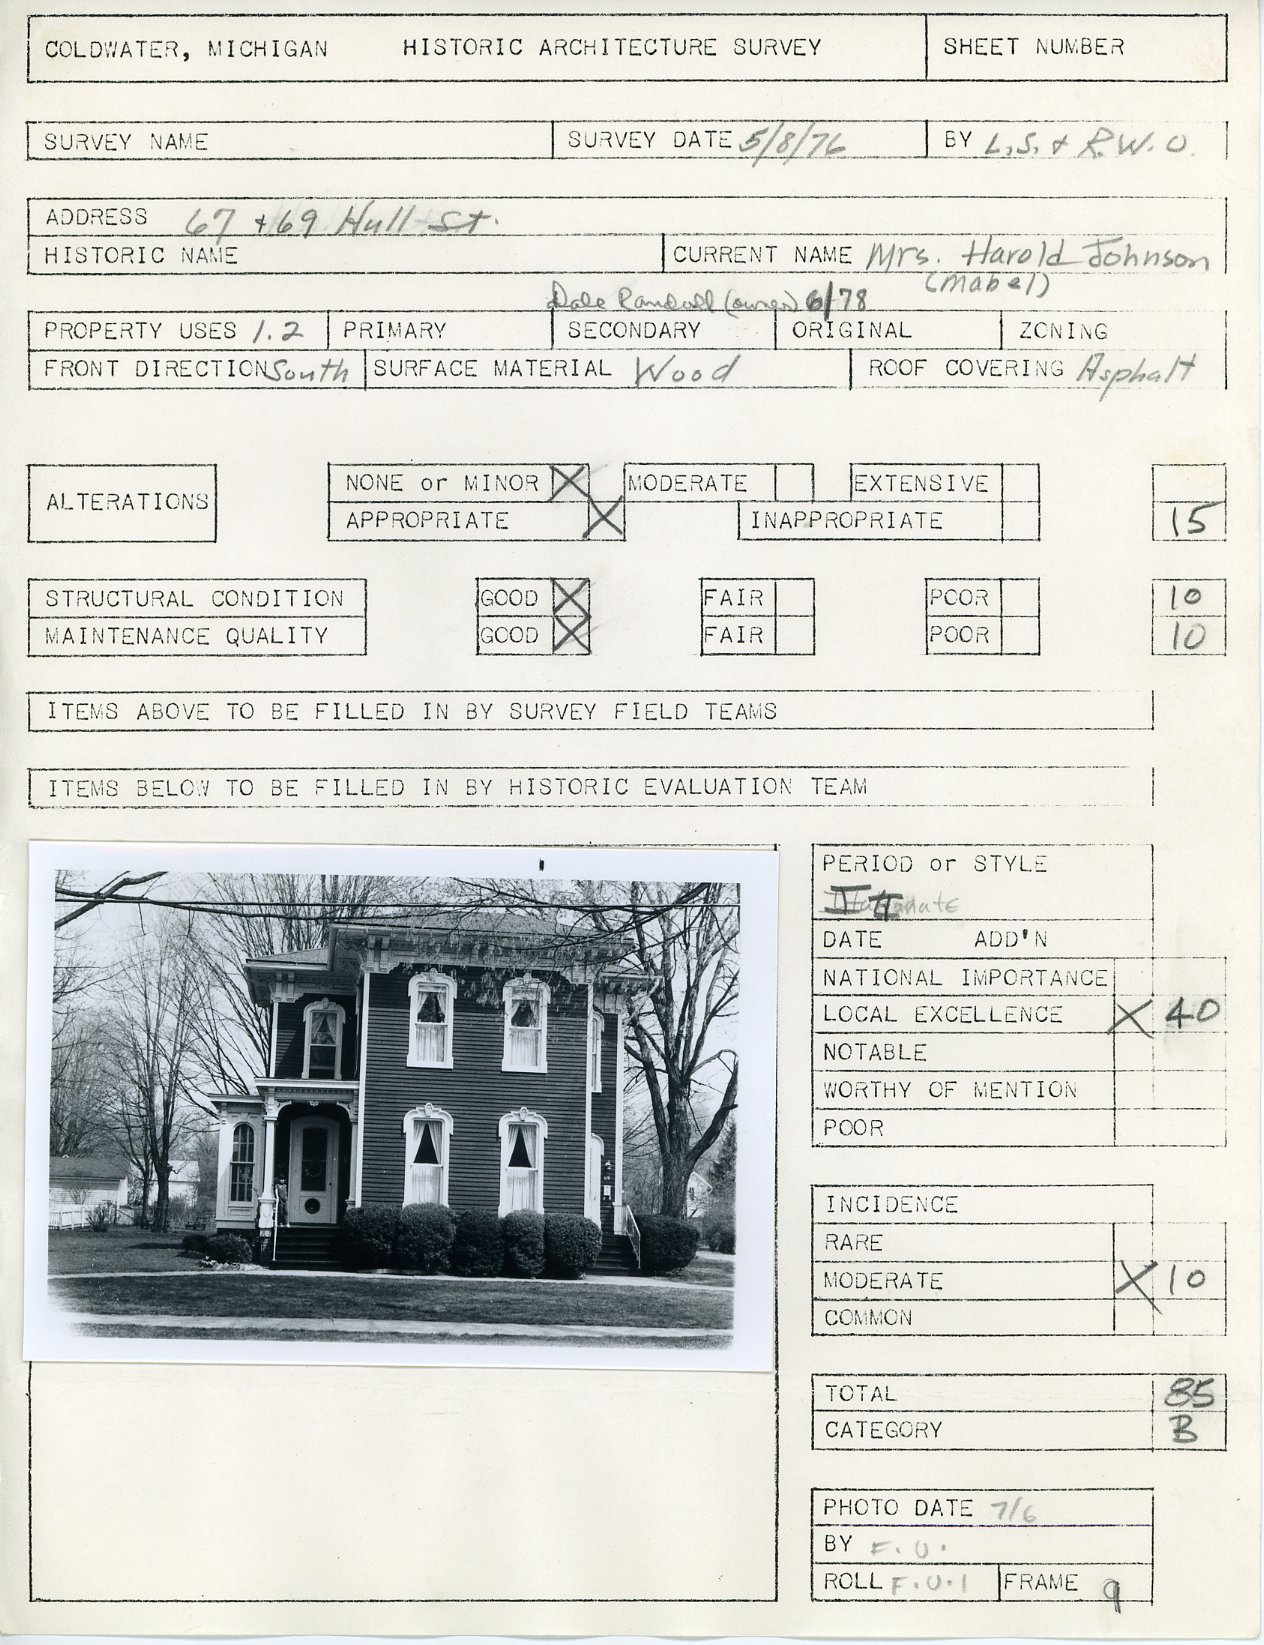 COLDWATER, MICHIGAN HISTORIC ARCHITECTURE SURVEY SHEET NUMBER
SURVEY NAME SURVEY DATE 5/8/76 BY L.S. + R.W.O.
ADDRESS 67 + 69 Hull St.
HISTORIC NAME CURRENT NAME Mrs. Harold Johnson
(Mabel)
Dale Randall (owner) 6/78
PROPERTY USES 1.2 PRIMARY SECONDARY ORIGINAL ZONING
FRONT DIRECTION South SURFACE MATERIAL Wood ROOF COVERING Asphalt
ALTERATIONS NONE or MINOR X MODERATE EXTENSIVE
APPROPRIATE X INAPPROPRIATE 15
STRUCTURAL CONDITION GOOD X FAIR POOR 10
MAINTENANCE QUALITY GOOD X FAIR POOR 10
ITEMS ABOVE TO BE FILLED IN BY SURVEY FIELD TEAMS
ITEMS BELOW TO BE FILLED IN BY HISTORIC EVALUATION TEAM
PERIOD or STYLE
DATE ADD'N
NATIONAL IMPORTANCE
LOCAL EXCELLENCE X 40
NOTABLE
WORTHY OF MENTION
POOR
INCIDENCE
RARE
MODERATE X 10
COMMON
TOTAL 85
CATEGORY B
PHOTO DATE 7/6
BY F.U.
ROLL F.U.1 FRAME 9